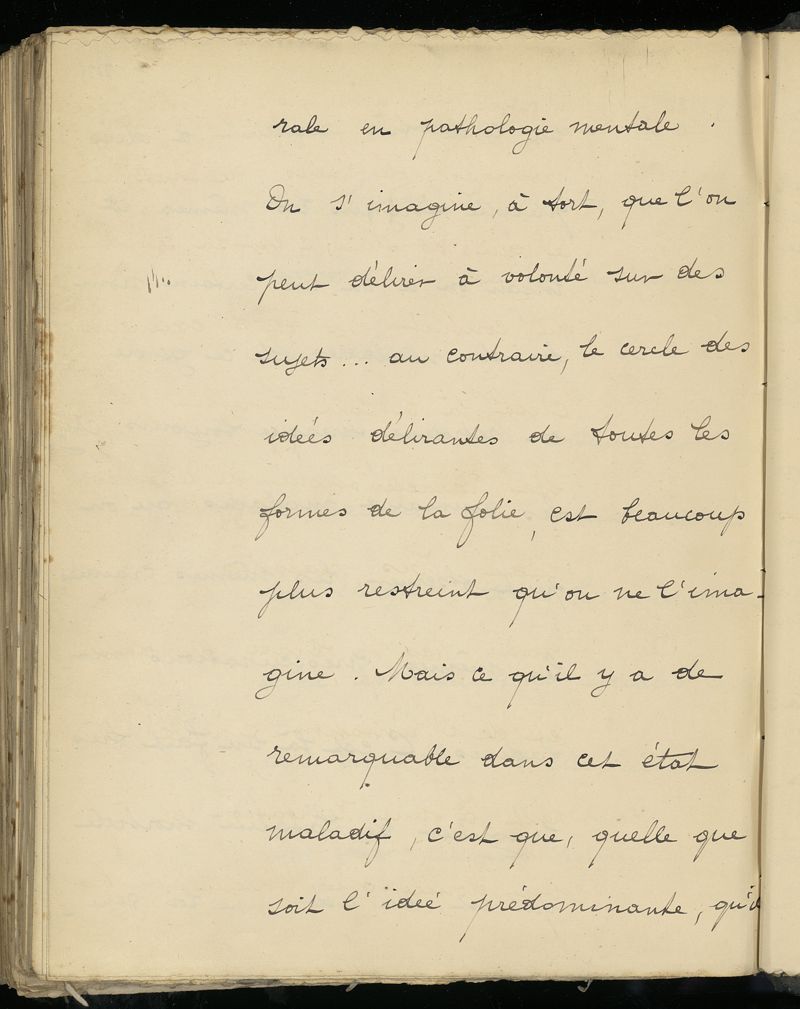 rale en pathologie mentale.
On s'imagine, à tort, que l'on
peut délirer à volonté sur des
sujets... au contraire, le cercle des
ideés délirantes de toutes les
formes de la folie, est beaucoup
plus restreint qu'on ne l'ima-
gine. Mais ce qu'il y a de
remarquable dans cet état
maladif, c'est que, quelle que
soit l'ideé prédominante, qu'il